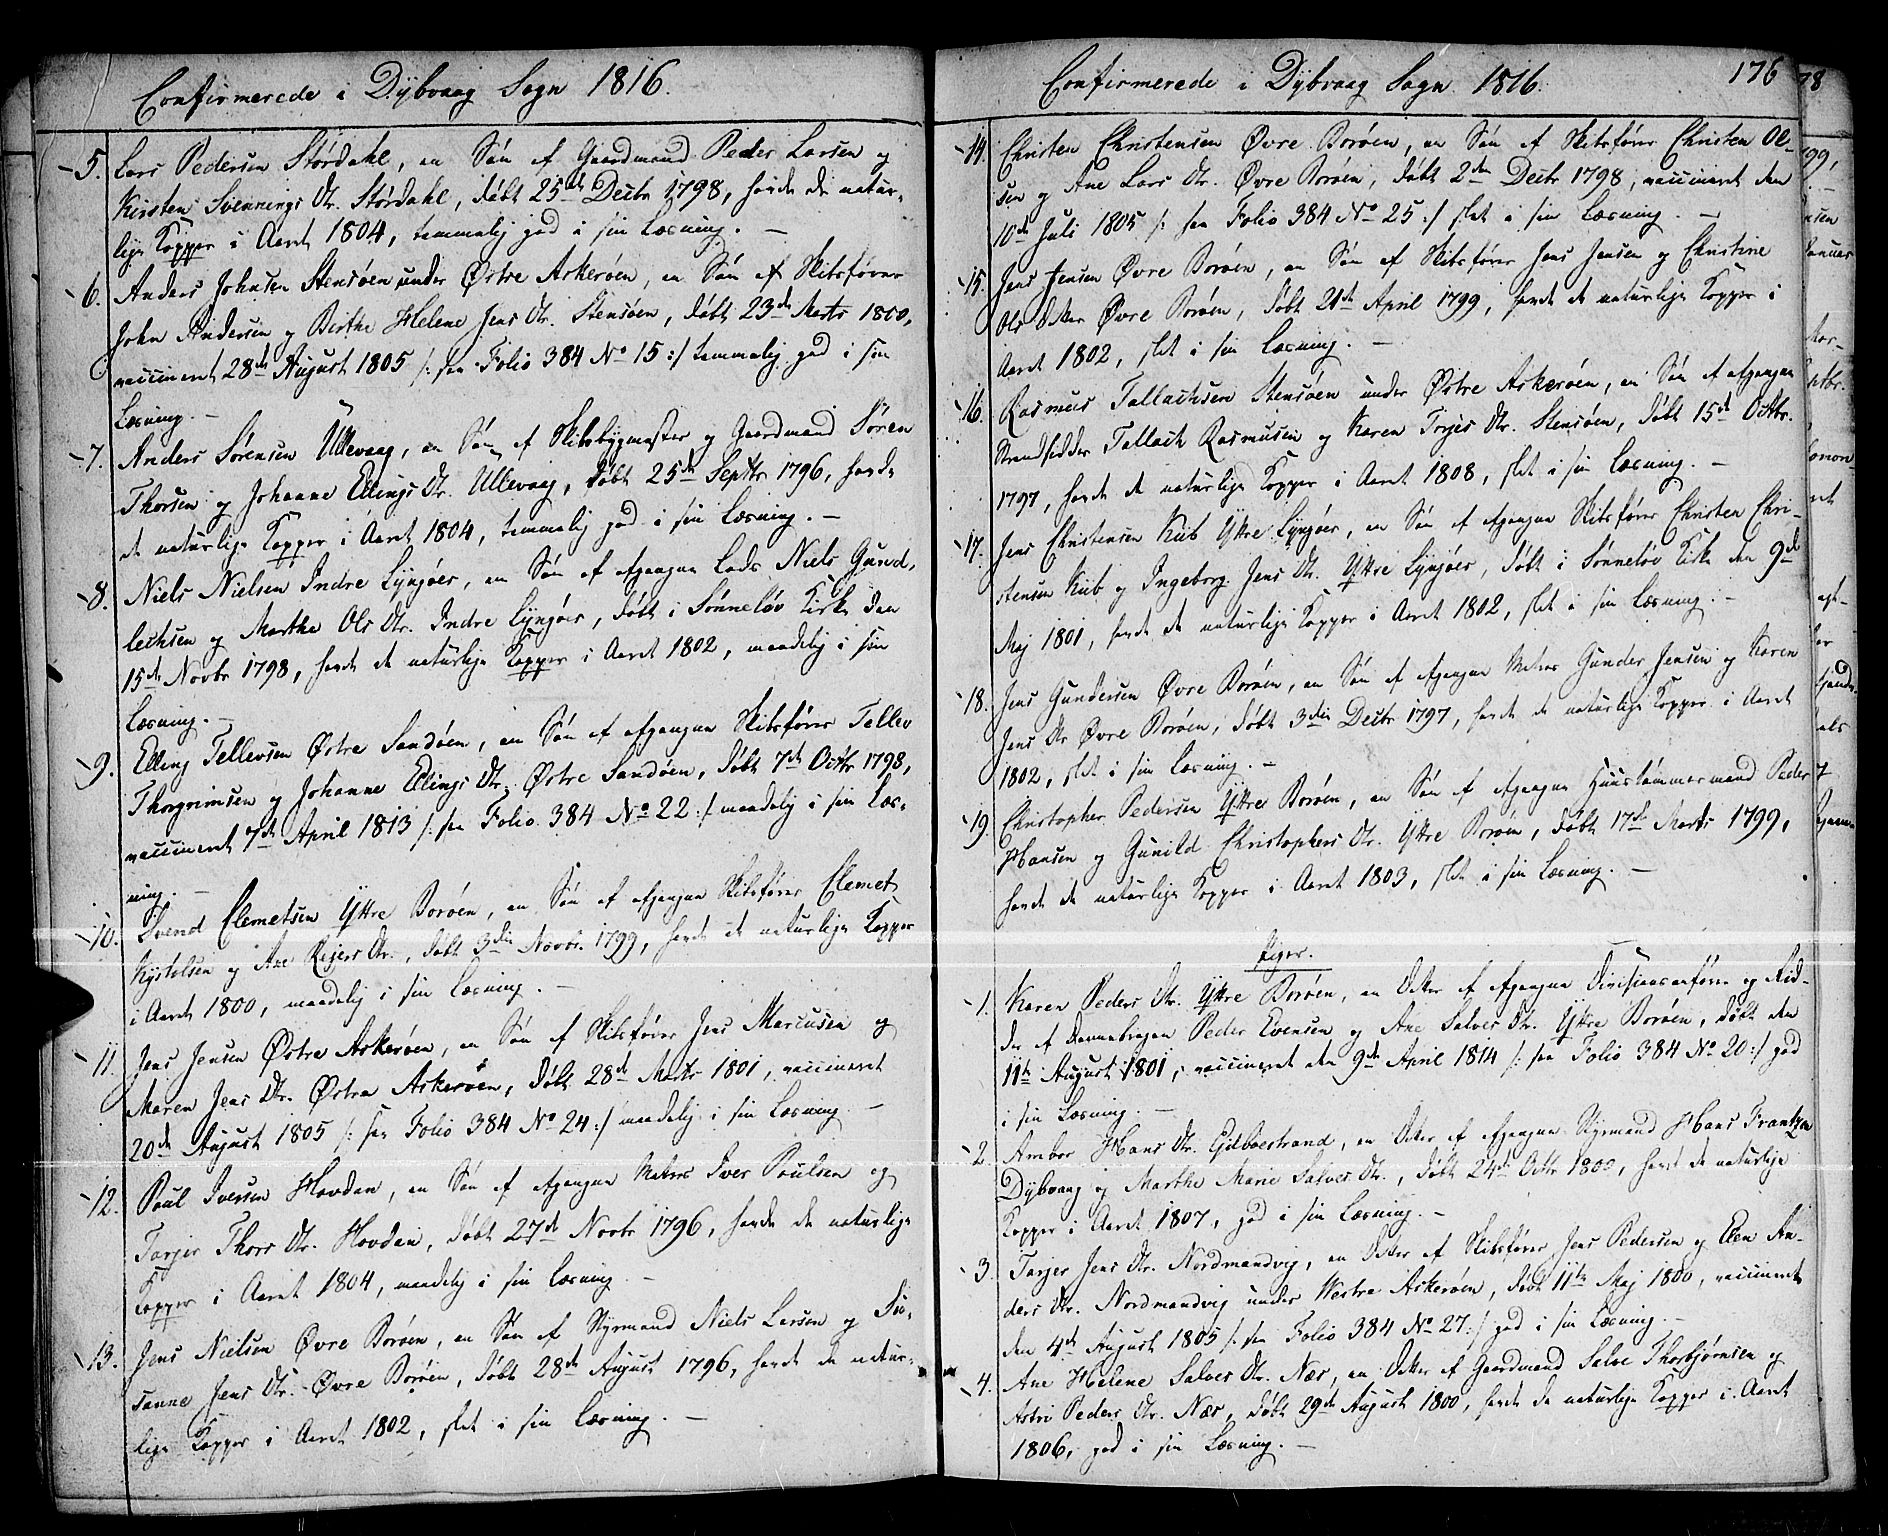 Confirmerede i Dybvaag Sogn 1816.
5. Lars Pedersen Størdahl, en Søn af Gaardmand Peder Larsen og
Kirsten Svennings Dtr. Størdahl, døbt 25de Decbr 1798, havde de natur-
lige Kopper i Aaret 1804, temmelig god i sin Læsning. —
6. Anders Johnsen Stensøen under Østre Askerøen, en Søn af Skibsfører
John Andersen og Birthe Helene Jens Dtr. Stensøen, døbt 23de Marts 1800,
vaccineret 28de August 1805 /: see Folio 384 No 15 :/ temmelig god i sin
Læsning. —
7. Anders Sørensen Ullevaag, en Søn af Skibsbygmester og Gaardmand Søren
Thorsen og Johanne Ellings Dtr. Ullevaag, døbt 25de Septbr 1796, havde
de naturlige Kopper i Aaret 1804, temmelig god i sin Læsning. —
8. Niels Nielsen Indre Lyngøer, en Søn af afgangne Lods Niels Gund-
lechsen og Marthe Ols Dtr. Indre Lyngøer, døbt i Sønneløv Kirke den
15de Novbr 1798, havde de naturlige Kopper i Aaret 1802, maadelig i sin
Læsning. —
9. Elling Tellevsen Østre Sandøen, en Søn af afgangne Skibsfører Tellev
Thorgrimsen og Johanne Ellings Dtr. Østre Sandøen, døbt 7de Octbr 1798,
vaccineret 7de April 1813 /: see Folio 384 No 22 :/ maadelig i sin Læs-
ning. —
10. Svend Clemetsen Yttre Borøen, en Søn af afgangne Skibsfører Clemet
Kystelsen og Ane Reiers Dtr., døbt 3die Novbr. 1799, havde de naturlige Kopper
i Aaret 1800, maadelig i sin Læsning. —
11. Jens Jensen Østre Askerøen, en Søn af Skibsfører Jens Marcusen og
Maren Jens Dtr. Østre Askerøen, døbt 28de Marts 1801, vaccineret
20de August 1805 /: see Folio 384 No 24 :/ maadelig i sin Læsning. —
12. Poul Iversen Hovdan, en Søn af afgangne Matros Iver Poulsen og
Tarjer Thors Dtr. Hovdan, døbt 27de Novbr 1796, havde de naturlige
Kopper i Aaret 1804, maadelig i sin Læsning. —
13. Jens Nielsen Øvre Borøen, en Søn af Styrmand Niels Larsen og Su-
sanne Jens Dtr. Øvre Borøen, døbt 28de August 1796, havde de natur-
lige Kopper i Aaret 1802, slet i sin Læsning. —
Confirmerede i Dybvaag Sogn 1816. 176
14. Christen Christensen Øvre Borøen, en Søn af Skibsfører Christen Ol-
sen og Ane Lars Dtr. Øvre Borøen, døbt 2den Decbr 1798, vaccineret den
10de Juli 1805 /: see Folio 384 No 25 :/ slet i sin Læsning. —
15. Jens Jensen Øvre Borøen, en Søn af Skibsfører Jens Jensen og Christine
Ols Datter Øvre Borøen, døbt 21de April 1799, havde de naturlige Kopper i
Aaret 1802, slet i sin Læsning. —
16. Rasmus Tallachsen Stensøen under Østre Askerøen, en Søn af afgangne
Strandsidder Tallach Rasmusen og Karen Terjes Dtr. Stensøen, døbt 15de Octbr.
1797, havde de naturlige Kopper i Aaret 1808, slet i sin Læsning. —
17. Jens Christensen Kiib Yttre Lyngøer, en Søn af afgangne Skibsfører Christen Chri-
stensen Kiib og Ingeborg Jens Dtr. Yttre Lyngøer, døbt i Sønneløv Kirke den 9de
Maj 1801, havde de naturlige Kopper i Aaret 1802, slet i sin Læsning. —
18. Jens Gundersen Øvre Borøen, en Søn af afgangne Matros Gunder Jensen og Karen
Jens Dtr Øvre Borøen, døbt 3die Decbr 1797, havde de naturlige Kopper i Aaret
1802, slet i sin Læsning. —
19. Christopher Pedersen Yttre Borøen, en Søn af afgangne Huustømmermand Peder
Hansen og Gunild Christophers Dtr. Yttre Borøen, døbt 17de Marts 1799,
havde de naturlige Kopper i Aaret 1803, slet i sin Læsning. —
Piger.
1. Karen Peders Dtr. Yttre Borøen, en Datter af afgangne Divisionsanfører og Rid-
der af Dannebrogen Peder Evensen og Ane Salves Dtr. Yttre Borøen, døbt den
11te August 1801, vaccineret den 9de April 1814 /: see Folio 384 No 20 :/ god
i sin Læsning. —
2. Ambor Hans Dtr. Gjelboestrand, en Datter af afgangne Styrmand Hans Frantzen
Dybvaag og Marthe Marie Salves Dtr., døbt 24de Octbr 1800, havde de naturlige
Kopper i Aaret 1807, god i sin Læsning. —
3. Tarjer Jens Dtr. Nordmandvig, en Datter af Skibsfører Jens Pedersen og Elen An-
ders Dtr. Nordmandvig under Westre Askerøen, døbt 11te Maj 1800, vaccineret
den 4de August 1805 /: see Folio 384 No 27 :/ god i sin Læsning. —
4. Ane Helene Salves Dtr. Næs, en Datter af Gaardmand Salve Thorbjørnsen og
Astri Peders Dtr. Næs, døbt 29de August 1800, havde de naturlige Kopper i Aaret
1806, god i sin Læsning. —